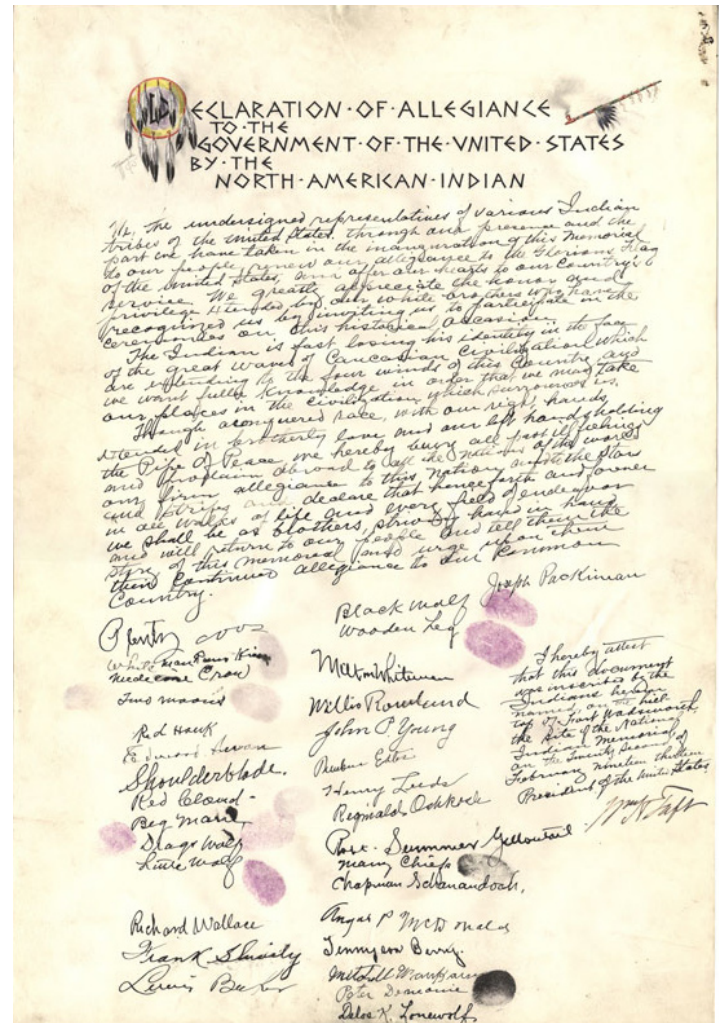 DECLARATION·OF·ALLEGIANCE
TO·THE
GOVERNMENT·OF·THE·VNITED·STATES
BY·THE
NORTH·AMERICAN·INDIAN
We, the undersigned representatives of various Indian
tribes of the United States, through our presence and the
part we have taken in the inauguration of this Memorial
to our people, renew our allegiance to the Glorious Flag
of the United States, and offer our hearts to our Country's
service. We greatly appreciate the honor and
privilege extended by our white brothers who have
recognized us by inviting us to participate in the
ceremonies on this historical occasion.
The Indian is fast losing his identity in the face
of the great waves of Caucasian Civilization which
are extending to the four winds of this Country and
we want fuller knowledge in order that we may take
our places in the civilization which surrounds us.
Though a conquered race, with our right hands
extended in brotherly love and our left hands holding
the Pipe of Peace, we hereby bury all past ill feelings
and proclaim abroad to all the nations of the world
our firm allegiance to this Nation and to the Stars
and Stripes and declare that henceforth and forever
in all walks of life and every field of endeavor
we shall be as brothers, striving hand in hand
and will return to our people and tell them the
story of this Memorial and urge upon them
their continued allegiance to our Common
Country.
Plenty coos
White man Runs Him
Medicine Crow
Two moons
Red Hawk
Edward Swan
Shoulderblade.
Red Cloud
Big Mane
Drags Wolf
Little Wolf
Richard Wallace
Frank Shively
Lewis Baker
Black Wolf
Wooden Leg
Joseph Packineau
Milton Whiteman
Willis Rowland
John P. Young
Reuben Estes
Henry Leeds
Reginald Oshkosh
Robt. Summer Yellowtail
Many Chiefs
Chapman Schanandoah.
Angus P McDonald
Tennyson Berry.
Mitchell
Peter Domonic
Delos K. Lonewolf
I hereby attest
that this document
was inscribed by the
Indians herein
named, on the hill
top of Fort Wadsworth
the site of the National
Indian Memorial
on the twenty second of
February nineteen thirteen
President of the United States.
Wm H Taft